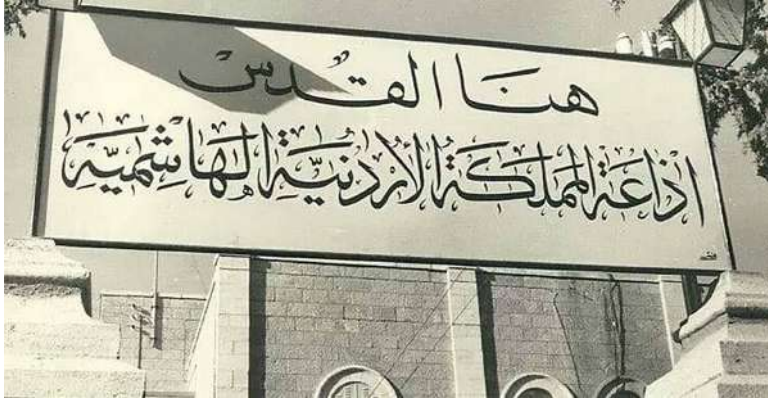 هنا القدس
اذاعة المملكة الأردنية الهاشمية